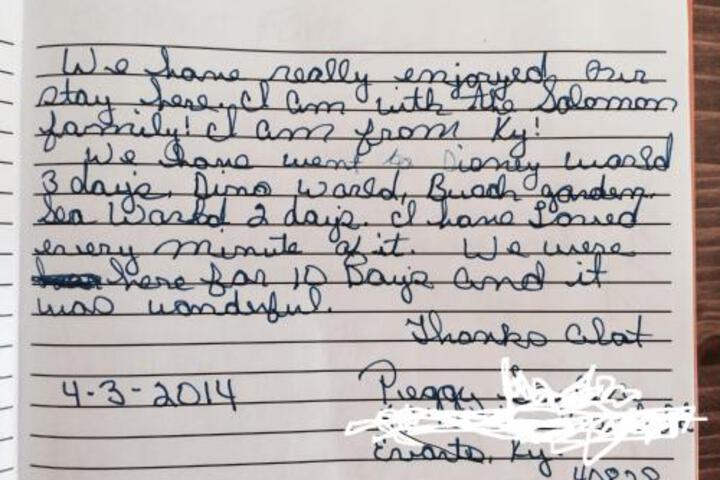 We have really enjoyed our
stay here. I am with the Solomon
family! I am from Ky!
We have went to Disney world
3 days, Dino World, Busch garden.
Sea World 2 days. I have Loved
every minute of it. We were
here for 10 Days and it
was wonderful.
Thanks alot
4-3-2014
Peggy
Evarts, Ky.
40828